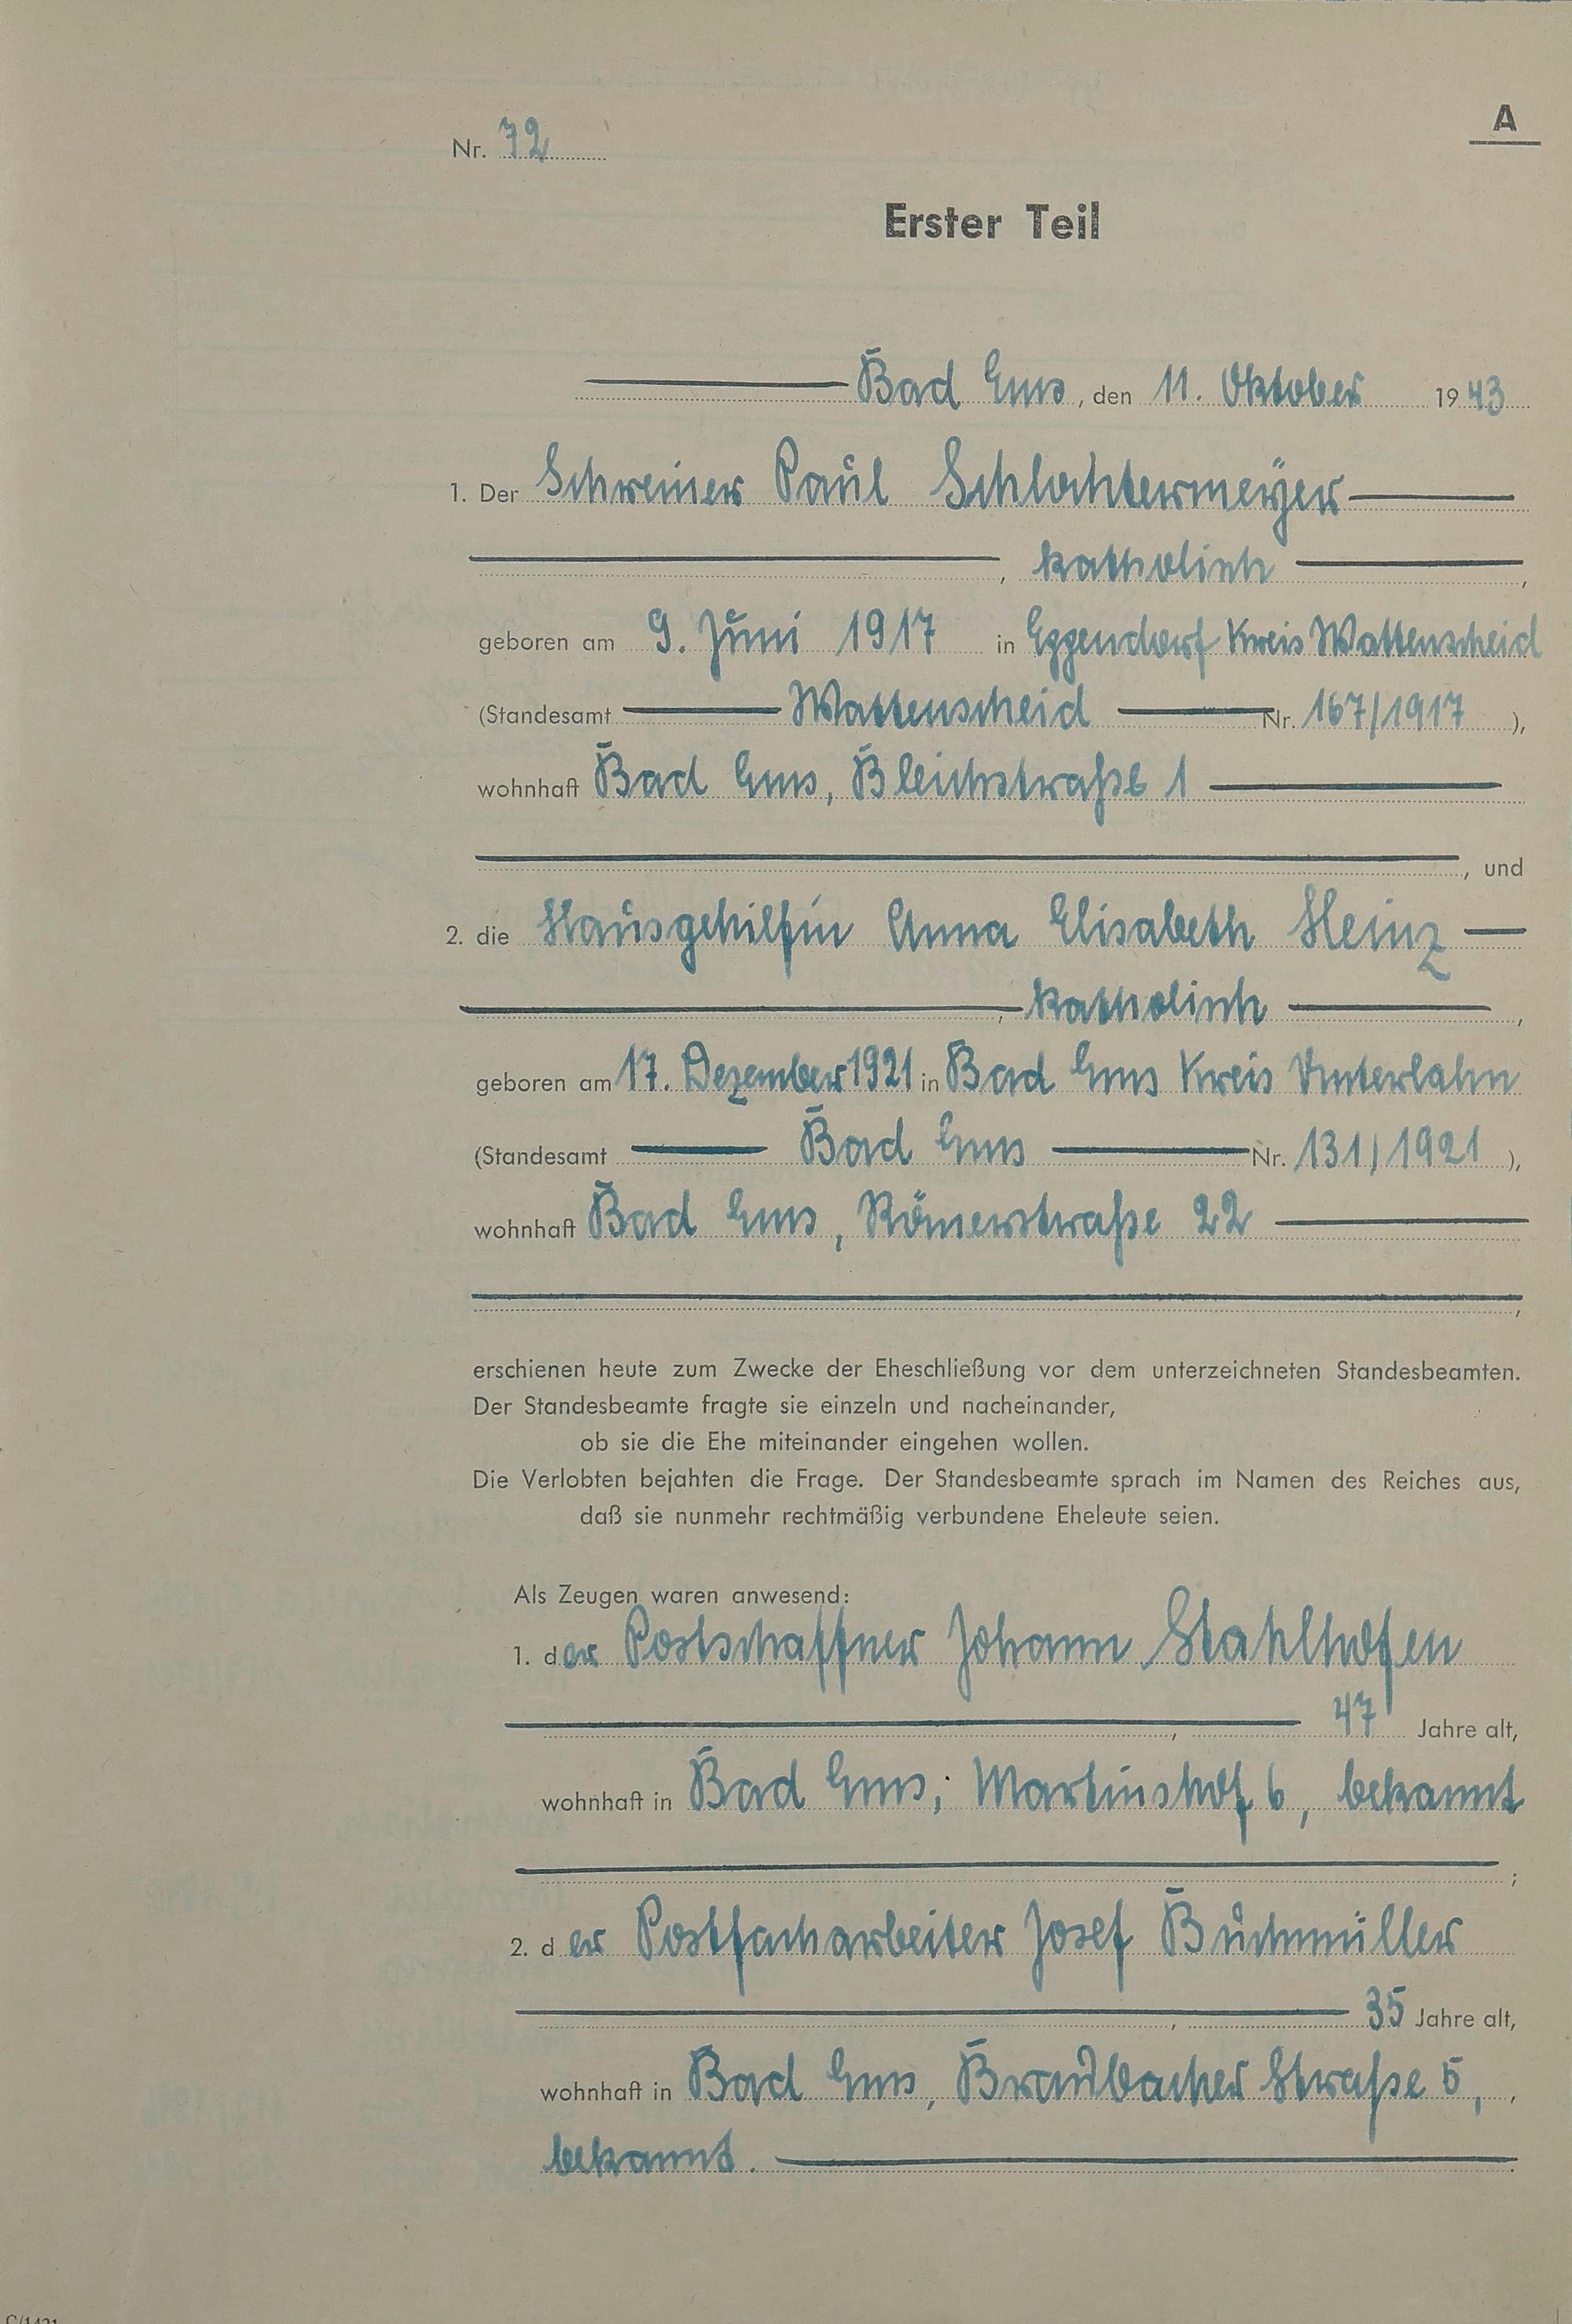 A
Nr. 72
Erster Teil
Bad Ems, den 11. Oktober 1943
1. Der Schreiner Paul Schlochtermeyer
, katholisch ,
geboren am 9. Juni 1917 in Eggendorf Kreis Wattenscheid
(Standesamt Wattenscheid Nr. 167/1917 ),
wohnhaft Bad Ems, Bleichstraße 1
, und
2. die Hausgehilfin Anna Elisabeth Heinz
, katholisch ,
geboren am 17. Dezember 1921 in Bad Ems Kreis Unterlahn
(Standesamt Bad Ems Nr. 131/1921 ),
wohnhaft Bad Ems, Römerstraße 22
,
erschienen heute zum Zwecke der Eheschließung vor dem unterzeichneten Standesbeamten.
Der Standesbeamte fragte sie einzeln und nacheinander,
ob sie die Ehe miteinander eingehen wollen.
Die Verlobten bejahten die Frage. Der Standesbeamte sprach im Namen des Reiches aus,
daß sie nunmehr rechtmäßig verbundene Eheleute seien.
Als Zeugen waren anwesend:
1. der Postschaffner Johann Stahlhofen
, 47 Jahre alt,
wohnhaft in Bad Ems, Martinshof 6, bekannt
;
2. der Postfacharbeiter Josef Buchmüller
, 35 Jahre alt,
wohnhaft in Bad Ems, Braubacher Straße 5, ,
bekannt.